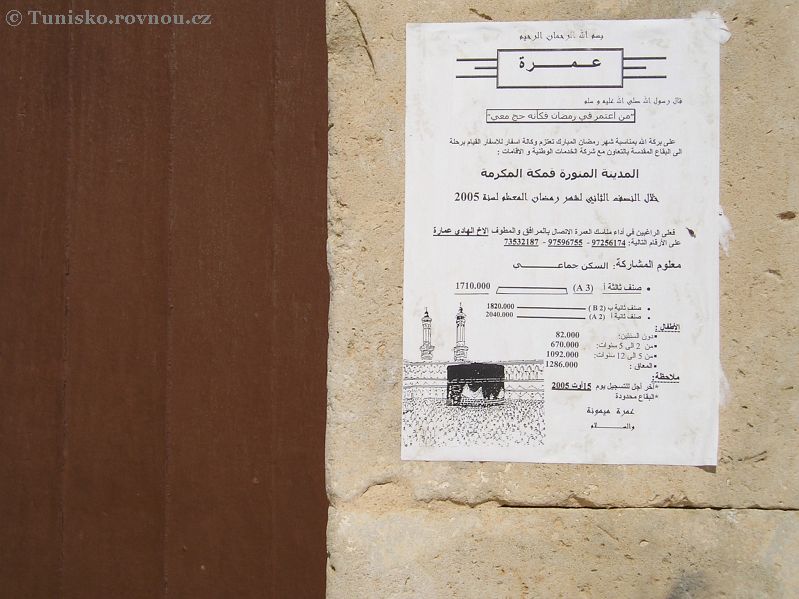 © Tunisko.rovnou.cz
بسم الله الرحمان الرحيم
عـــمـــرة
قال رسول الله صلى الله عليه و سلم
"من اعتمر في رمضان فكأنه حج معي"
على بركة الله بمناسبة شهر رمضان المبارك تعتزم وكالة اسفار للاسفار القيام برحلة
الى البقاع المقدسة بالتعاون مع شركة الخدمات الوطنية و الاقامات :
المدينة المنورة فمكة المكرمة
خلال النصف الثاني لشهر رمضان المعظم لسنة 2005
فعلى الراغبين في أداء مناسك العمرة الاتصال بالمرافق والمطوف الاخ الهادي عمارة
على الأرقام التالية: 97256174 - 97596755 - 73532187
معلوم المشاركة: السكن جماعــــي
• صنف ثالثة أ (A 3) 1710.000
• صنف ثانية ب (B 2) 1820.000
• صنف ثانية أ (A 2) 2040.000
الأطفال :
•دون السنتين: 82.000
•من 2 الى 5 سنوات: 670.000
•من 5 الى 12 سنوات: 1092.000
•المعاق : 1286.000
ملاحظة:
*آخر أجل للتسجيل يوم 15 أوت 2005
*البقاع محدودة
عمرة ميمونة
والســـلام